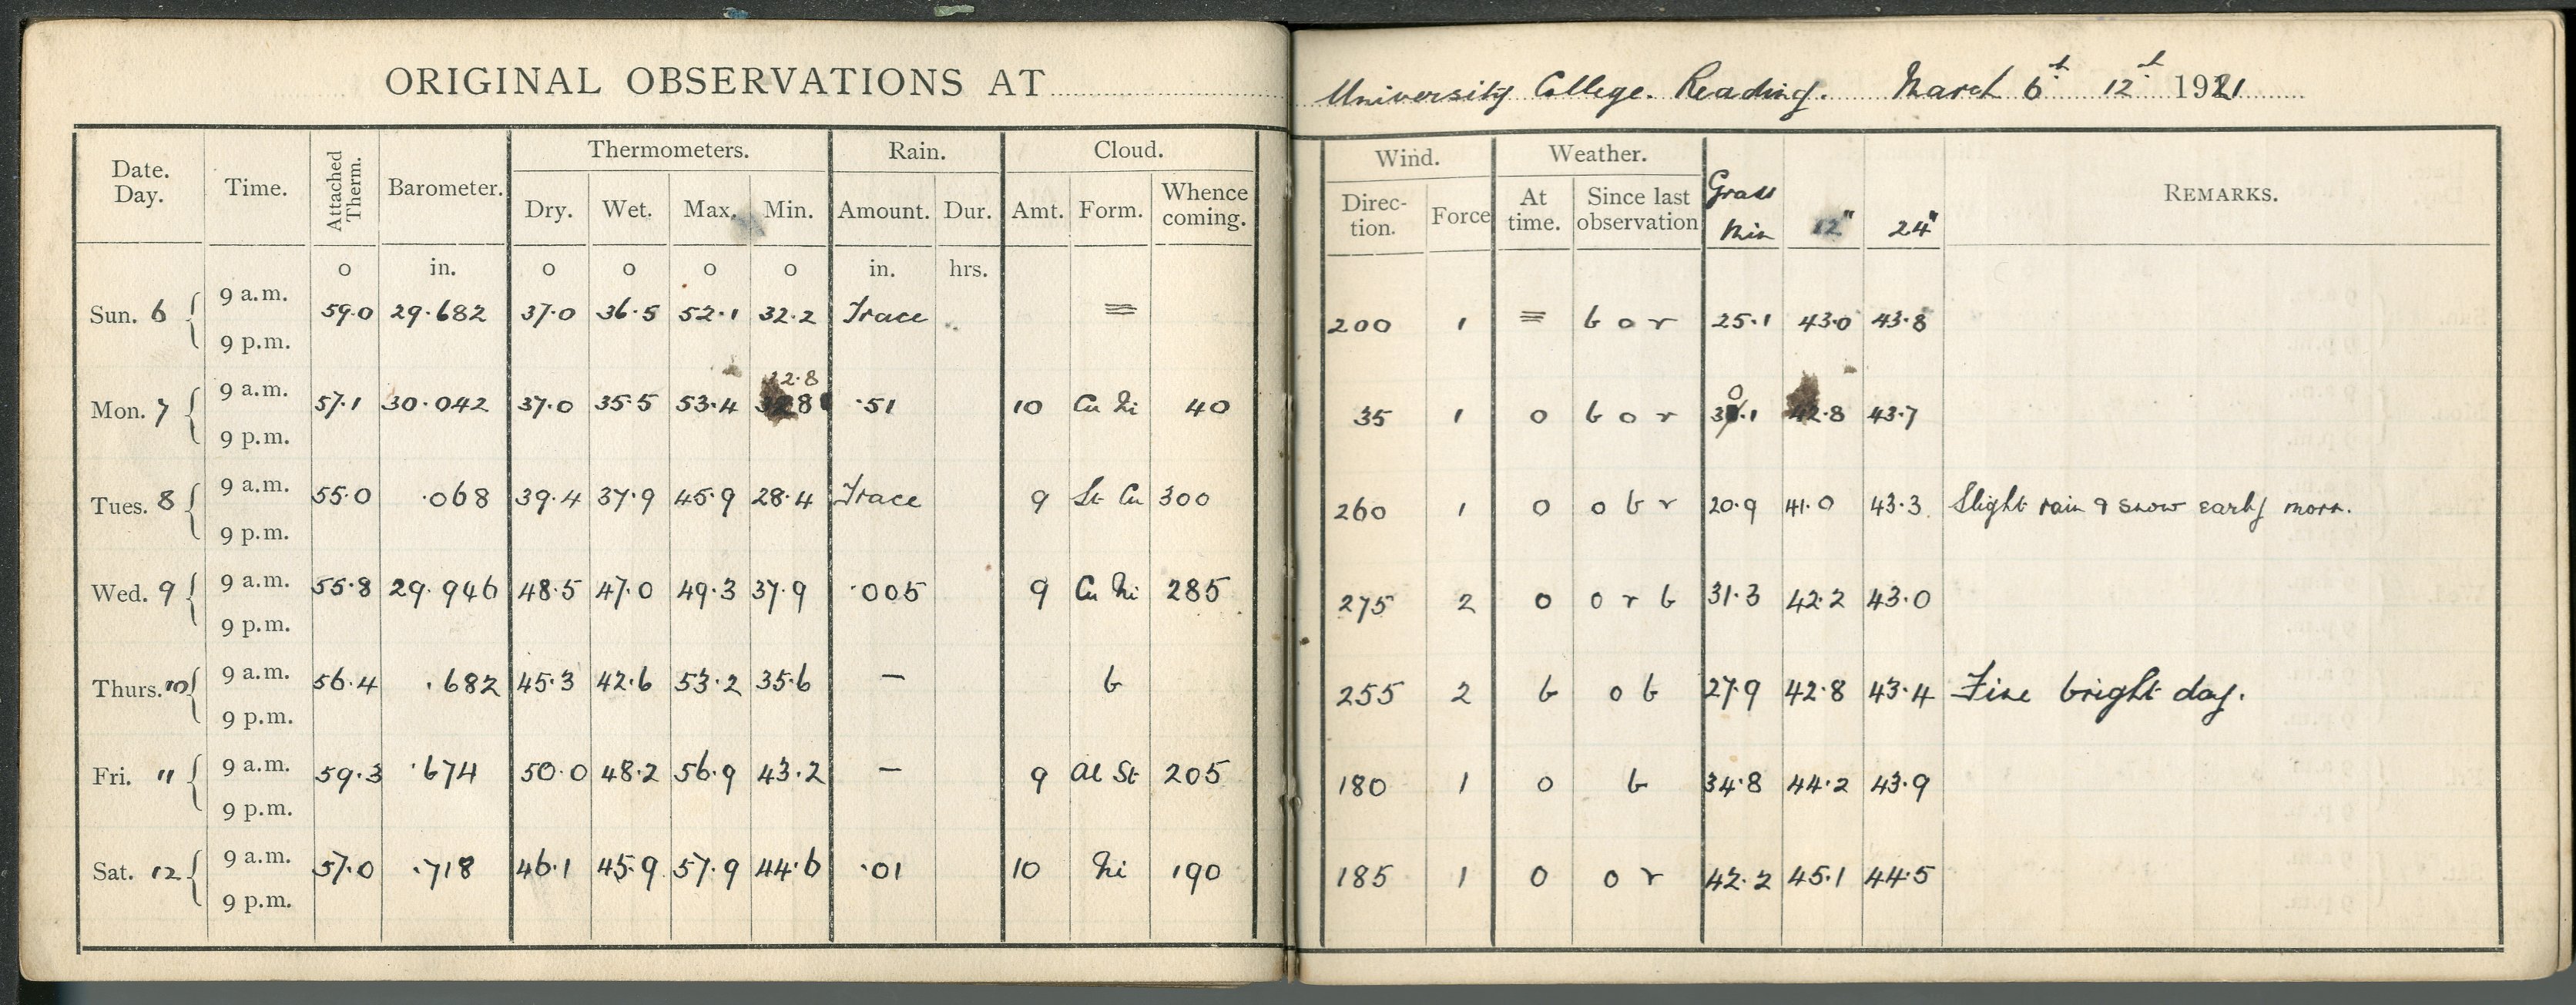 ORIGINAL OBSERVATIONS AT University College. Reading. March 6th 12th 1921
Date. Day. Time. Attached Therm. Barometer. Thermometers. Rain. Cloud. Wind. Weather. Grass Min 12" 24" REMARKS.
Dry. Wet. Max. Min. Amount. Dur. Amt. Form. Whence coming. Direction. Force At time. Since last observation
o in. o o o o in. hrs.
Sun. 6 9 a.m. 59.0 29.682 37.0 36.5 52.1 32.2 Trace ≡ 200 1 ≡ b o r 25.1 43.0 43.8
9 p.m.
Mon. 7 9 a.m. 57.1 30.042 37.0 35.5 53.4 32.8 .51 10 Cu Ni 40 35 1 o b o r 30.1 42.8 43.7
9 p.m.
Tues. 8 9 a.m. 55.0 .068 39.4 37.9 45.9 28.4 Trace 9 St Cu 300 260 1 o o b r 20.9 41.0 43.3 Slight rain & snow early morn.
9 p.m.
Wed. 9 9 a.m. 55.8 29.946 48.5 47.0 49.3 37.9 .005 9 Cu Ni 285 275 2 o o r b 31.3 42.2 43.0
9 p.m.
Thurs. 10 9 a.m. 56.4 .682 45.3 42.6 53.2 35.6 — b 255 2 b o b 27.9 42.8 43.4 Fine bright day.
9 p.m.
Fri. 11 9 a.m. 59.3 .674 50.0 48.2 56.9 43.2 — 9 Al St 205 180 1 o b 34.8 44.2 43.9
9 p.m.
Sat. 12 9 a.m. 57.0 .718 46.1 45.9 57.9 44.6 .01 10 Ni 190 185 1 o o r 42.2 45.1 44.5
9 p.m.